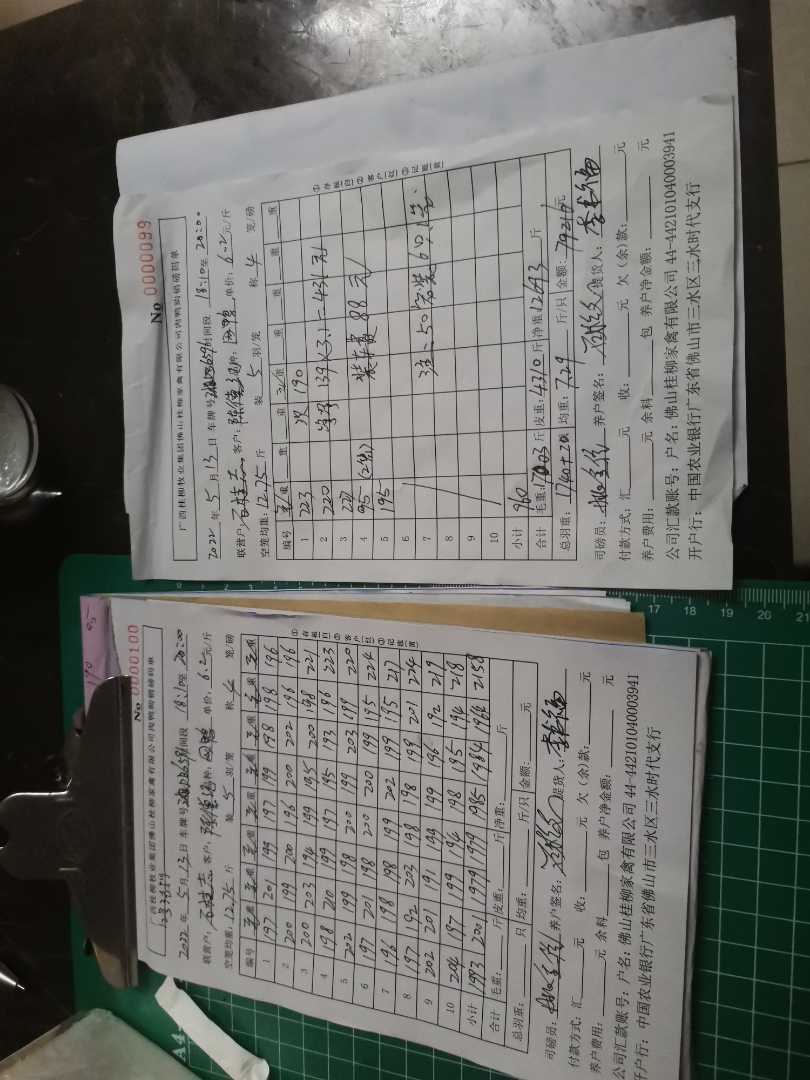 No 0000099
广西桂柳牧业集团佛山桂柳家禽有限公司肉鸭购销磅码单
2022 年 5 月 13 日 车牌号 时间段 18:10至 20:00
联营户: 客户: 种: 单价: 6.2元/斤
空笼均重: 12.75 斤 装 5 羽/笼 称 4 笼/磅
编号 毛重 重 重 毛重 重 重 重 重
1 223 次 190
2 220 139×3.1=431元
3 221
4 95(2笼) 装车费 88元
5 195
6
7 注:50笼装6只1笼.
8
9
10
小计 960
合计 毛重: 17003 斤 皮重: 4310 斤 净重: 12693 斤
总羽重: 均重: 7.29 斤/只 金额: 元
①存根白②客户红③记账黄
司磅员: 养户签名: 提货人:
付款方式: 汇 元 收: 元 欠(余)款: 元
养户费用: 元 余料 包 养户净金额: 元
公司汇款账号: 户名: 佛山桂柳家禽有限公司 44-442101040003941
开户行: 中国农业银行广东省佛山市三水区三水时代支行
No 0000100
广西桂柳牧业集团佛山桂柳家禽有限公司肉鸭购销磅码单
2022 年 5 月 13 日 车牌号 时间段 18:10至 20:00
联营户: 客户: 种: 单价: 6.2元/斤
空笼均重: 12.75 斤 装 5 羽/笼 称 4 笼/磅
编号 毛重 毛重 毛重 毛重 毛重 毛重 毛重 毛重
1 197 201 199 197 199 198 198 196
2 200 199 200 196 200 202 196 196
3 200 203 194 199 195 200 198 221
4 198 200 199 197 195 193 196 223
5 202 199 198 200 199 203 199 220
6 197 201 198 200 200 199 195 224
7 196 198 198 199 202 199 195 217
8 197 192 203 198 198 198 201 224
9 202 201 191 199 199 196 192 219
10 204 197 199 194 198 195 194 218
小计 1993 2001 1979 1979 1985 1984 1964 2158
合计 毛重: 斤 皮重: 斤 净重: 斤
总羽重: 只 均重: 斤/只 金额: 元
①存根白②客户红③记账黄
司磅员: 养户签名: 提货人:
付款方式: 汇 元 收: 元 欠(余)款: 元
养户费用: 元 余料 包 养户净金额: 元
公司汇款账号: 户名: 佛山桂柳家禽有限公司 44-442101040003941
开户行: 中国农业银行广东省佛山市三水区三水时代支行
17 18 19 20 21
A4